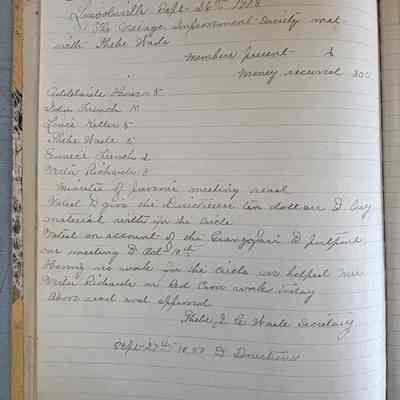 Lincolnville Sept 26th 1918
The Village Improvement Society met
with Phebe Wade
Members present 6
Money received 30¢
Adelaide 5
Ida French 10
Louie Keller 5
Phebe Wade 5
Eunice French 2
Meta Richards 3
Minutes of previous meeting read
Voted to give the Directress ten dollars to buy
material with for the circle
Voted on account of the Grange Fair to postpone
our meeting to Oct 10th
Having no work for the circle we helped Mrs
Meta Richards on Red Cross work today
Above read and approved
Phebe J C Wade Secretary
Sept 27th 10.00 to Directress